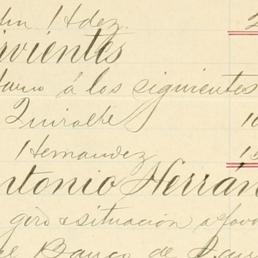 Hdez. 2
vivientes
á los siguientes
Quiralte 10
Hernandez 15
ntonio Herran
giro situación a favo
Banco de